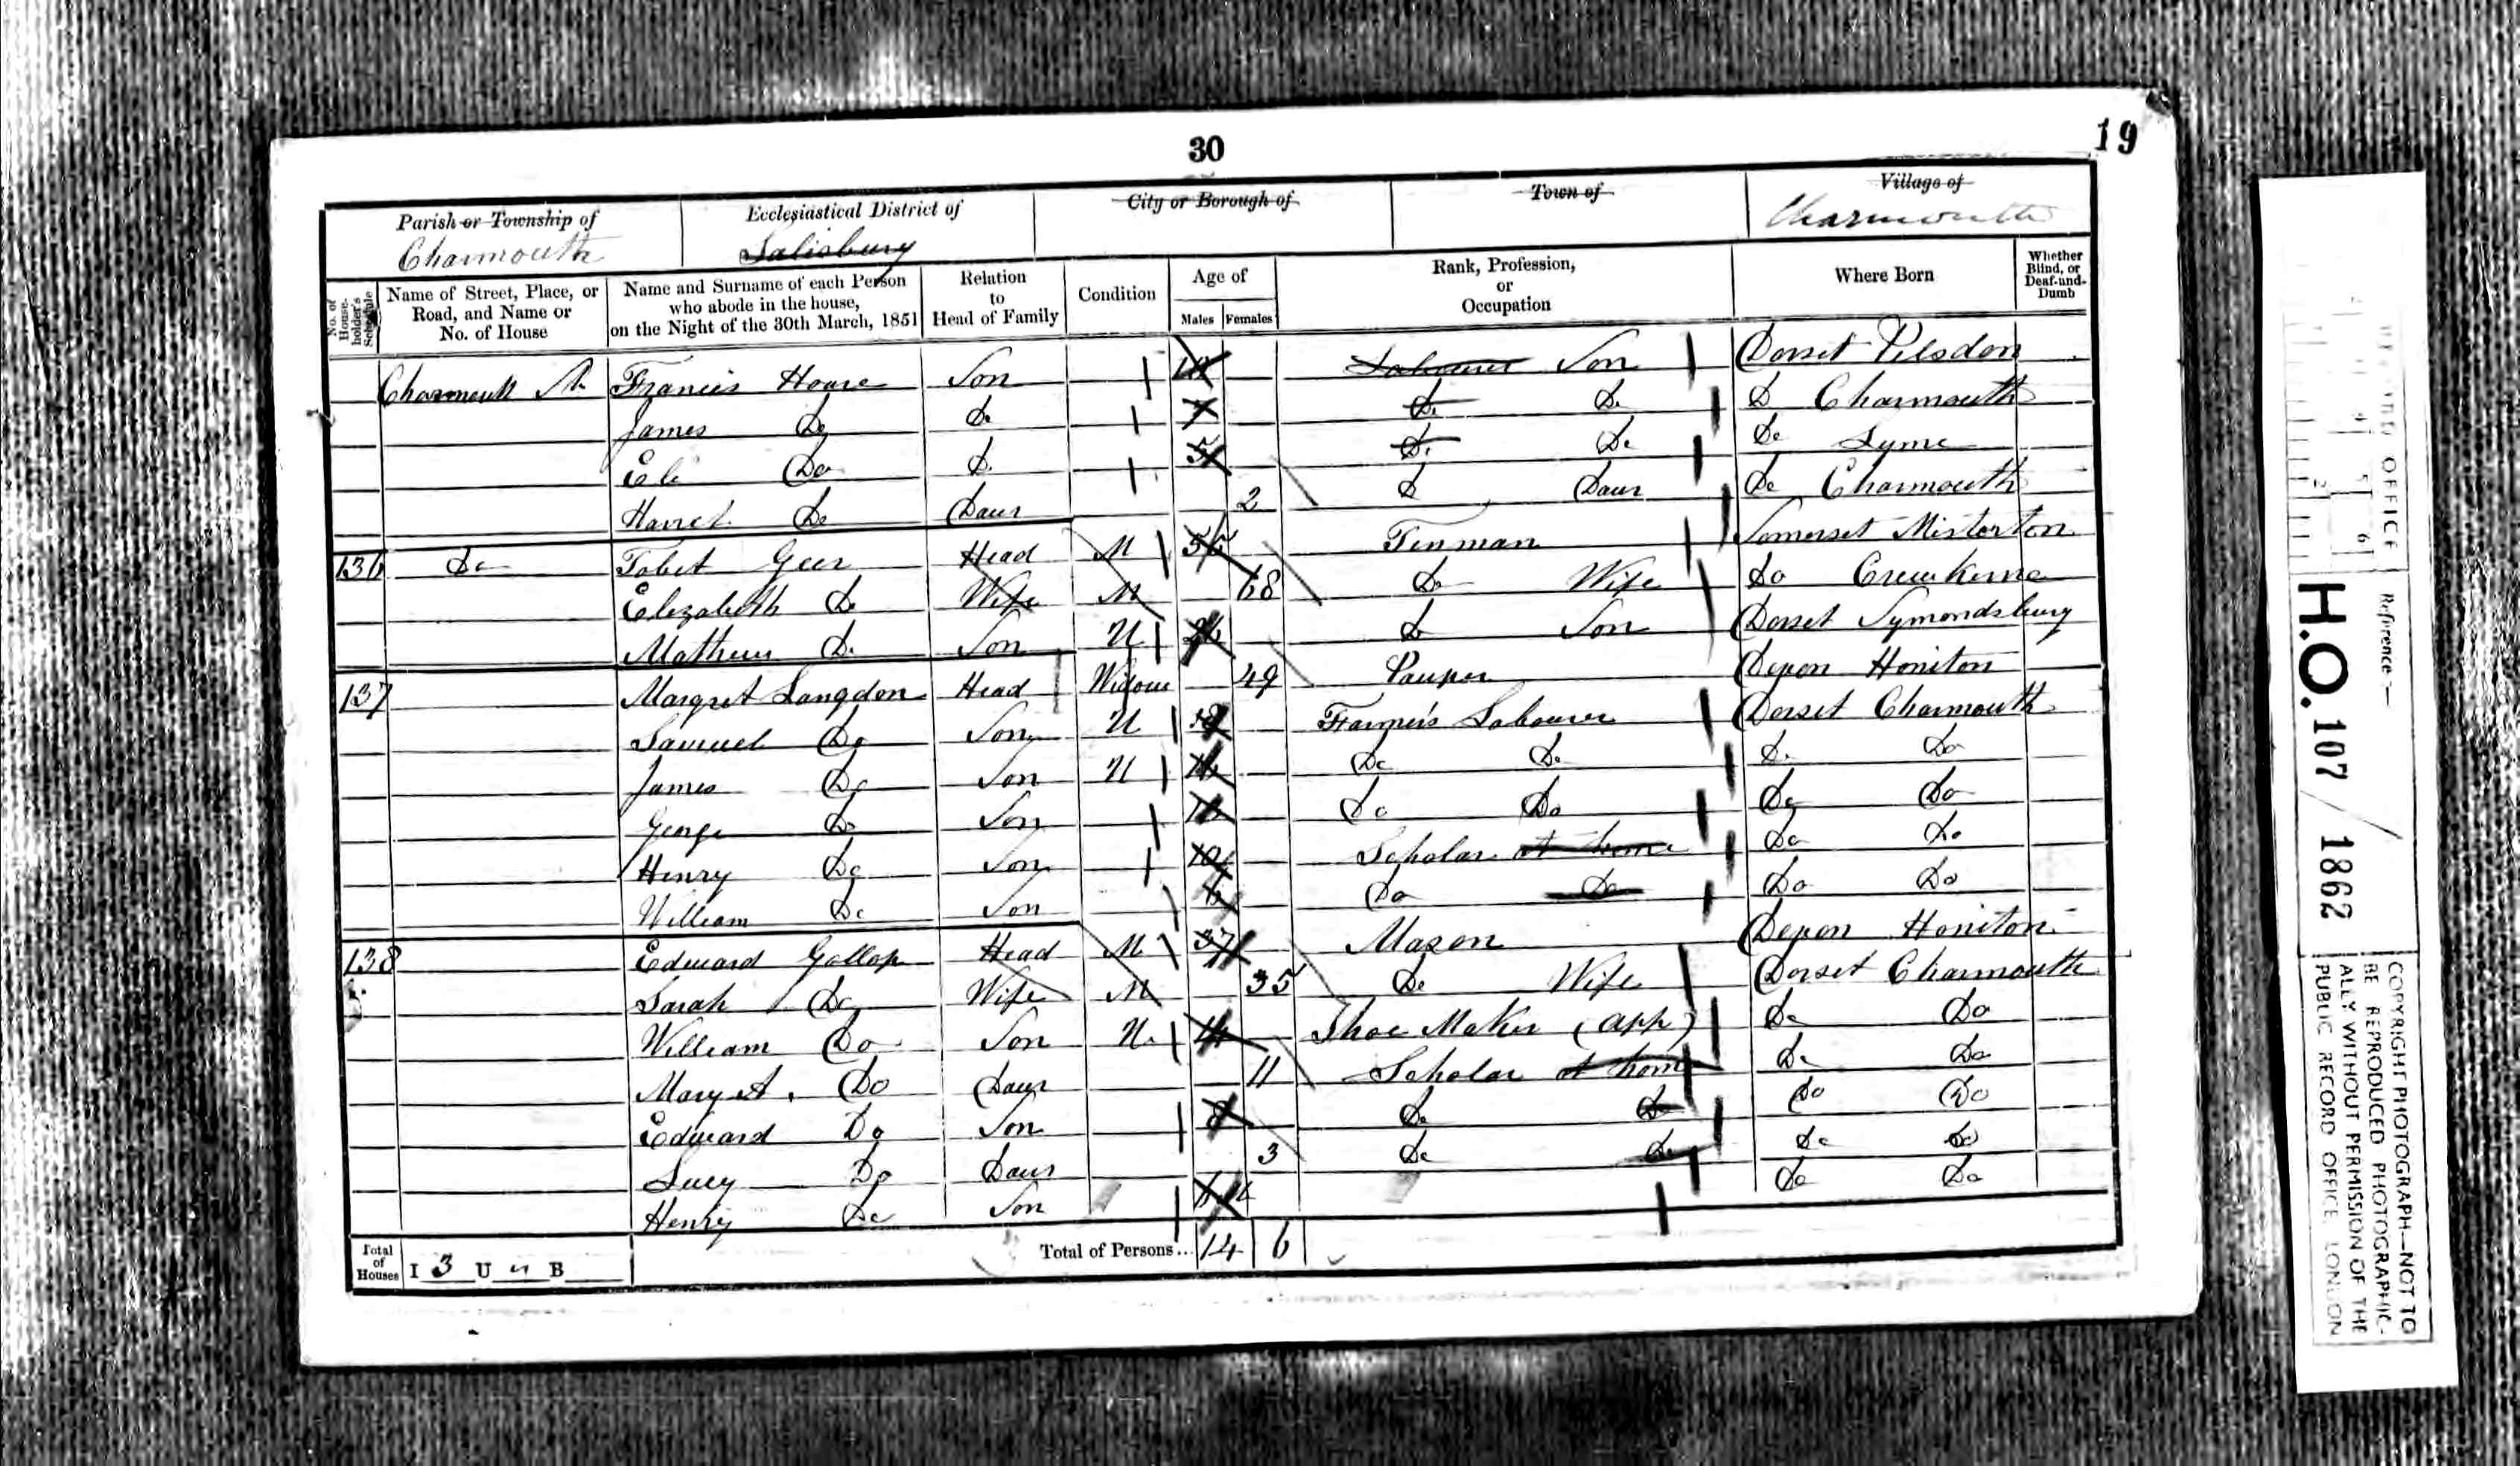 30
19
Parish or Township of
Charmouth
Ecclesiastical District of
Salisbury
City or Borough of
Town of
Village of
Charmouth
No. of House-holder's Schedule
Name of Street, Place, or Road, and Name or No. of House
Name and Surname of each Person who abode in the house, on the Night of the 30th March, 1851
Relation to Head of Family
Condition
Age of
Males Females
Rank, Profession, or Occupation
Where Born
Whether Blind, or Deaf-and-Dumb
Charmouth St. Francis Hoare Son Labourer Son Dorset Pilsdon
James Do Do 7 Do Do Do Charmouth
Eli Do Do 5 Do Do Do Lyme
Harriet Do Daur 2 Do Daur Do Charmouth
136 Do Tobit Geer Head M Tinman Somerset Misterton
Elizabeth Do Wife M 68 Do Wife Do Crewkerne
Mathew Do Son U Do Son Dorset Symondsbury
137 Margret Langdon Head Widow 49 Pauper Devon Honiton
Samuel Do Son U Farmer's Labourer Dorset Charmouth
James Do Son U Do Do Do Do
George Do Son Do Do Do Do
Henry Do Son 10 Scholar at home Do Do
William Do Son 6 Do Do Do Do
138 Edward Gollop Head M 37 Mason Devon Honiton
Sarah Do Wife M 35 Do Wife Dorset Charmouth
William Do Son U. 14 Shoe Maker (app) Do Do
Mary A. Do Daur 11 Scholar at home Do Do
Edward Do Son 8 Do Do Do Do
Lucy Do Daur 3 Do Do Do Do
Henry Do Son Do Do
Total of Houses I 3 U B
Total of Persons... 14 6
PUBLIC RECORD OFFICE
Reference:-
H.O. 107 / 1862
COPYRIGHT PHOTOGRAPH—NOT TO BE REPRODUCED PHOTOGRAPHIC-ALLY WITHOUT PERMISSION OF THE PUBLIC RECORD OFFICE, LONDON